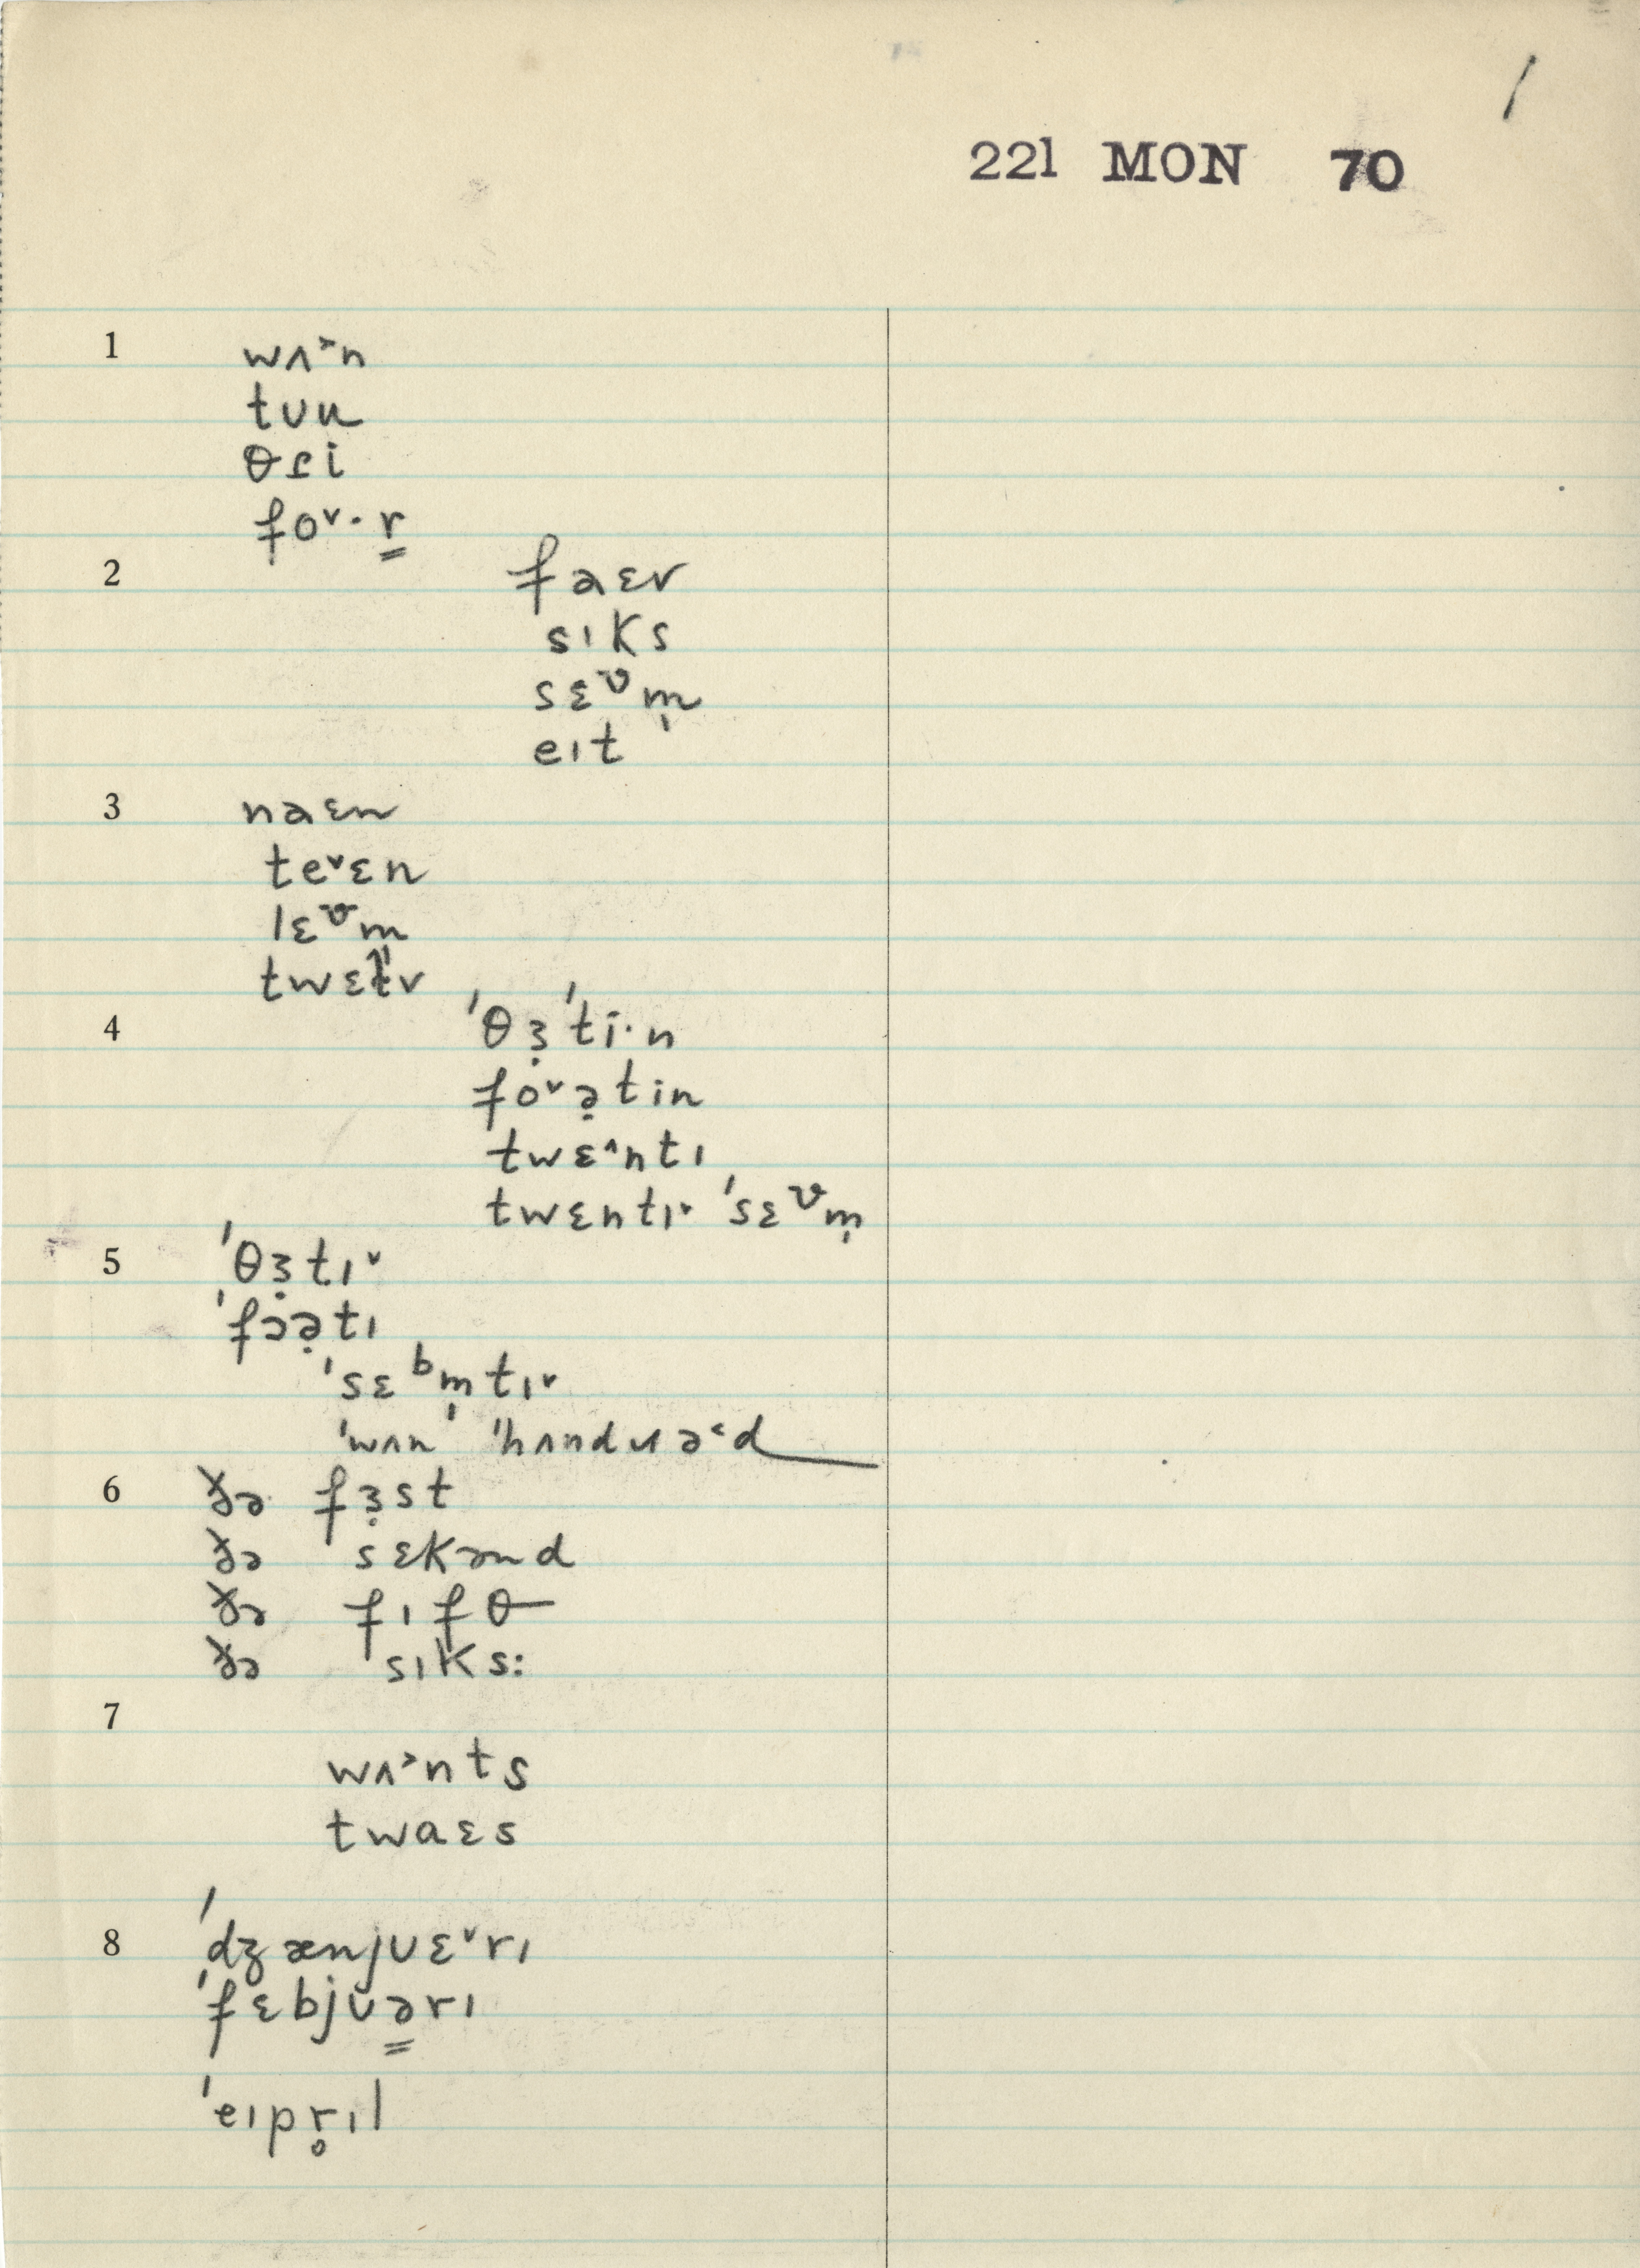 /
221 MON 70
1 wʌ˃n
tᴜu
θɾi
fo˅· r̳
2 faɛv
sıks
sɛᵛm̩
eıt
3 naɛn
te˅ɛn
lɛᵛm
twɛɫv
4 ˈθɜ̣ˈti·n
fo˅ə̣tin
twɛ˄ntı
twɛntı˅ ˈsɛᵛm̩
5 ˈθɜ̣tı˅
ˈfɔə̣tı
ˈsɛᵇm̩tı˅
ˈwʌn ˈhʌndɹə˂d
6 ðə fɜ̣st
ðə sɛkənd
ðə fıfθ
ðə sıks:
7
wʌ˃nts
twaɛs
8 ˈdʒænjᴜɛ˅rı
ˈfɛbjᴜə̳rı
ˈeıpr̥ıl